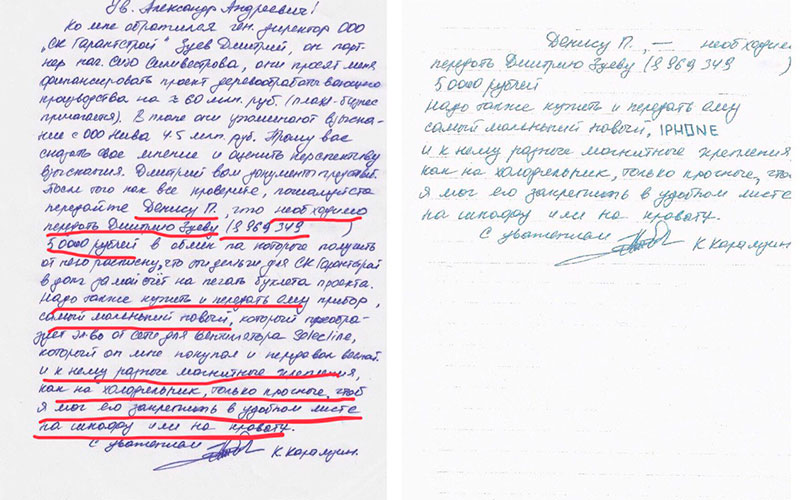 Ув. Александр Андреевич!
Ко мне обратился ген. директор ООО
„СК Гарантстрой" Зуев Дмитрий, он парт-
нер Селивестрова, они просят меня
финансировать проект деревообрабатывающего
производства на ≈ 60 млн. руб. (план-бизнес
прилагается). В плане они упоминают взыска-
ние с ООО Нива 4.5 млн. руб. Прошу вас
сказать свое мнение и оценить перспективу
взыскания. Дмитрий вам документы предоставит.
После того как все проверите, пожалуйста
передайте Денису П., что необходимо
передать Дмитрию Зуеву (8 969 349 )
50000 рублей в обмен на которого получить
от него расписку, что эти деньги для СК Гарантстрой
в долг за мой счёт на печать буклета проекта.
Надо также купить и передать ему прибор,
самый маленький новый, который преобра-
зует эл-во от сети для вентилятора Solecline,
который он мне покупал и передавал весной.
и к нему разные магнитные крепления,
как на холодильник, только прочные, чтоб
я мог его закрепить в удобном месте
на шкафу или на кровати.
С уважением К. Карамзин.
Денису П., — необходимо
передать Дмитрию Зуеву (8 969 349 )
50000 рублей
Надо также купить и передать ему
самый маленький новый, IPHONE
и к нему разные магнитные крепления,
как на холодильник, только прочные, чтоб
я мог его закрепить в удобном месте
на шкафу или на кровати.
С уважением К. Карамзин